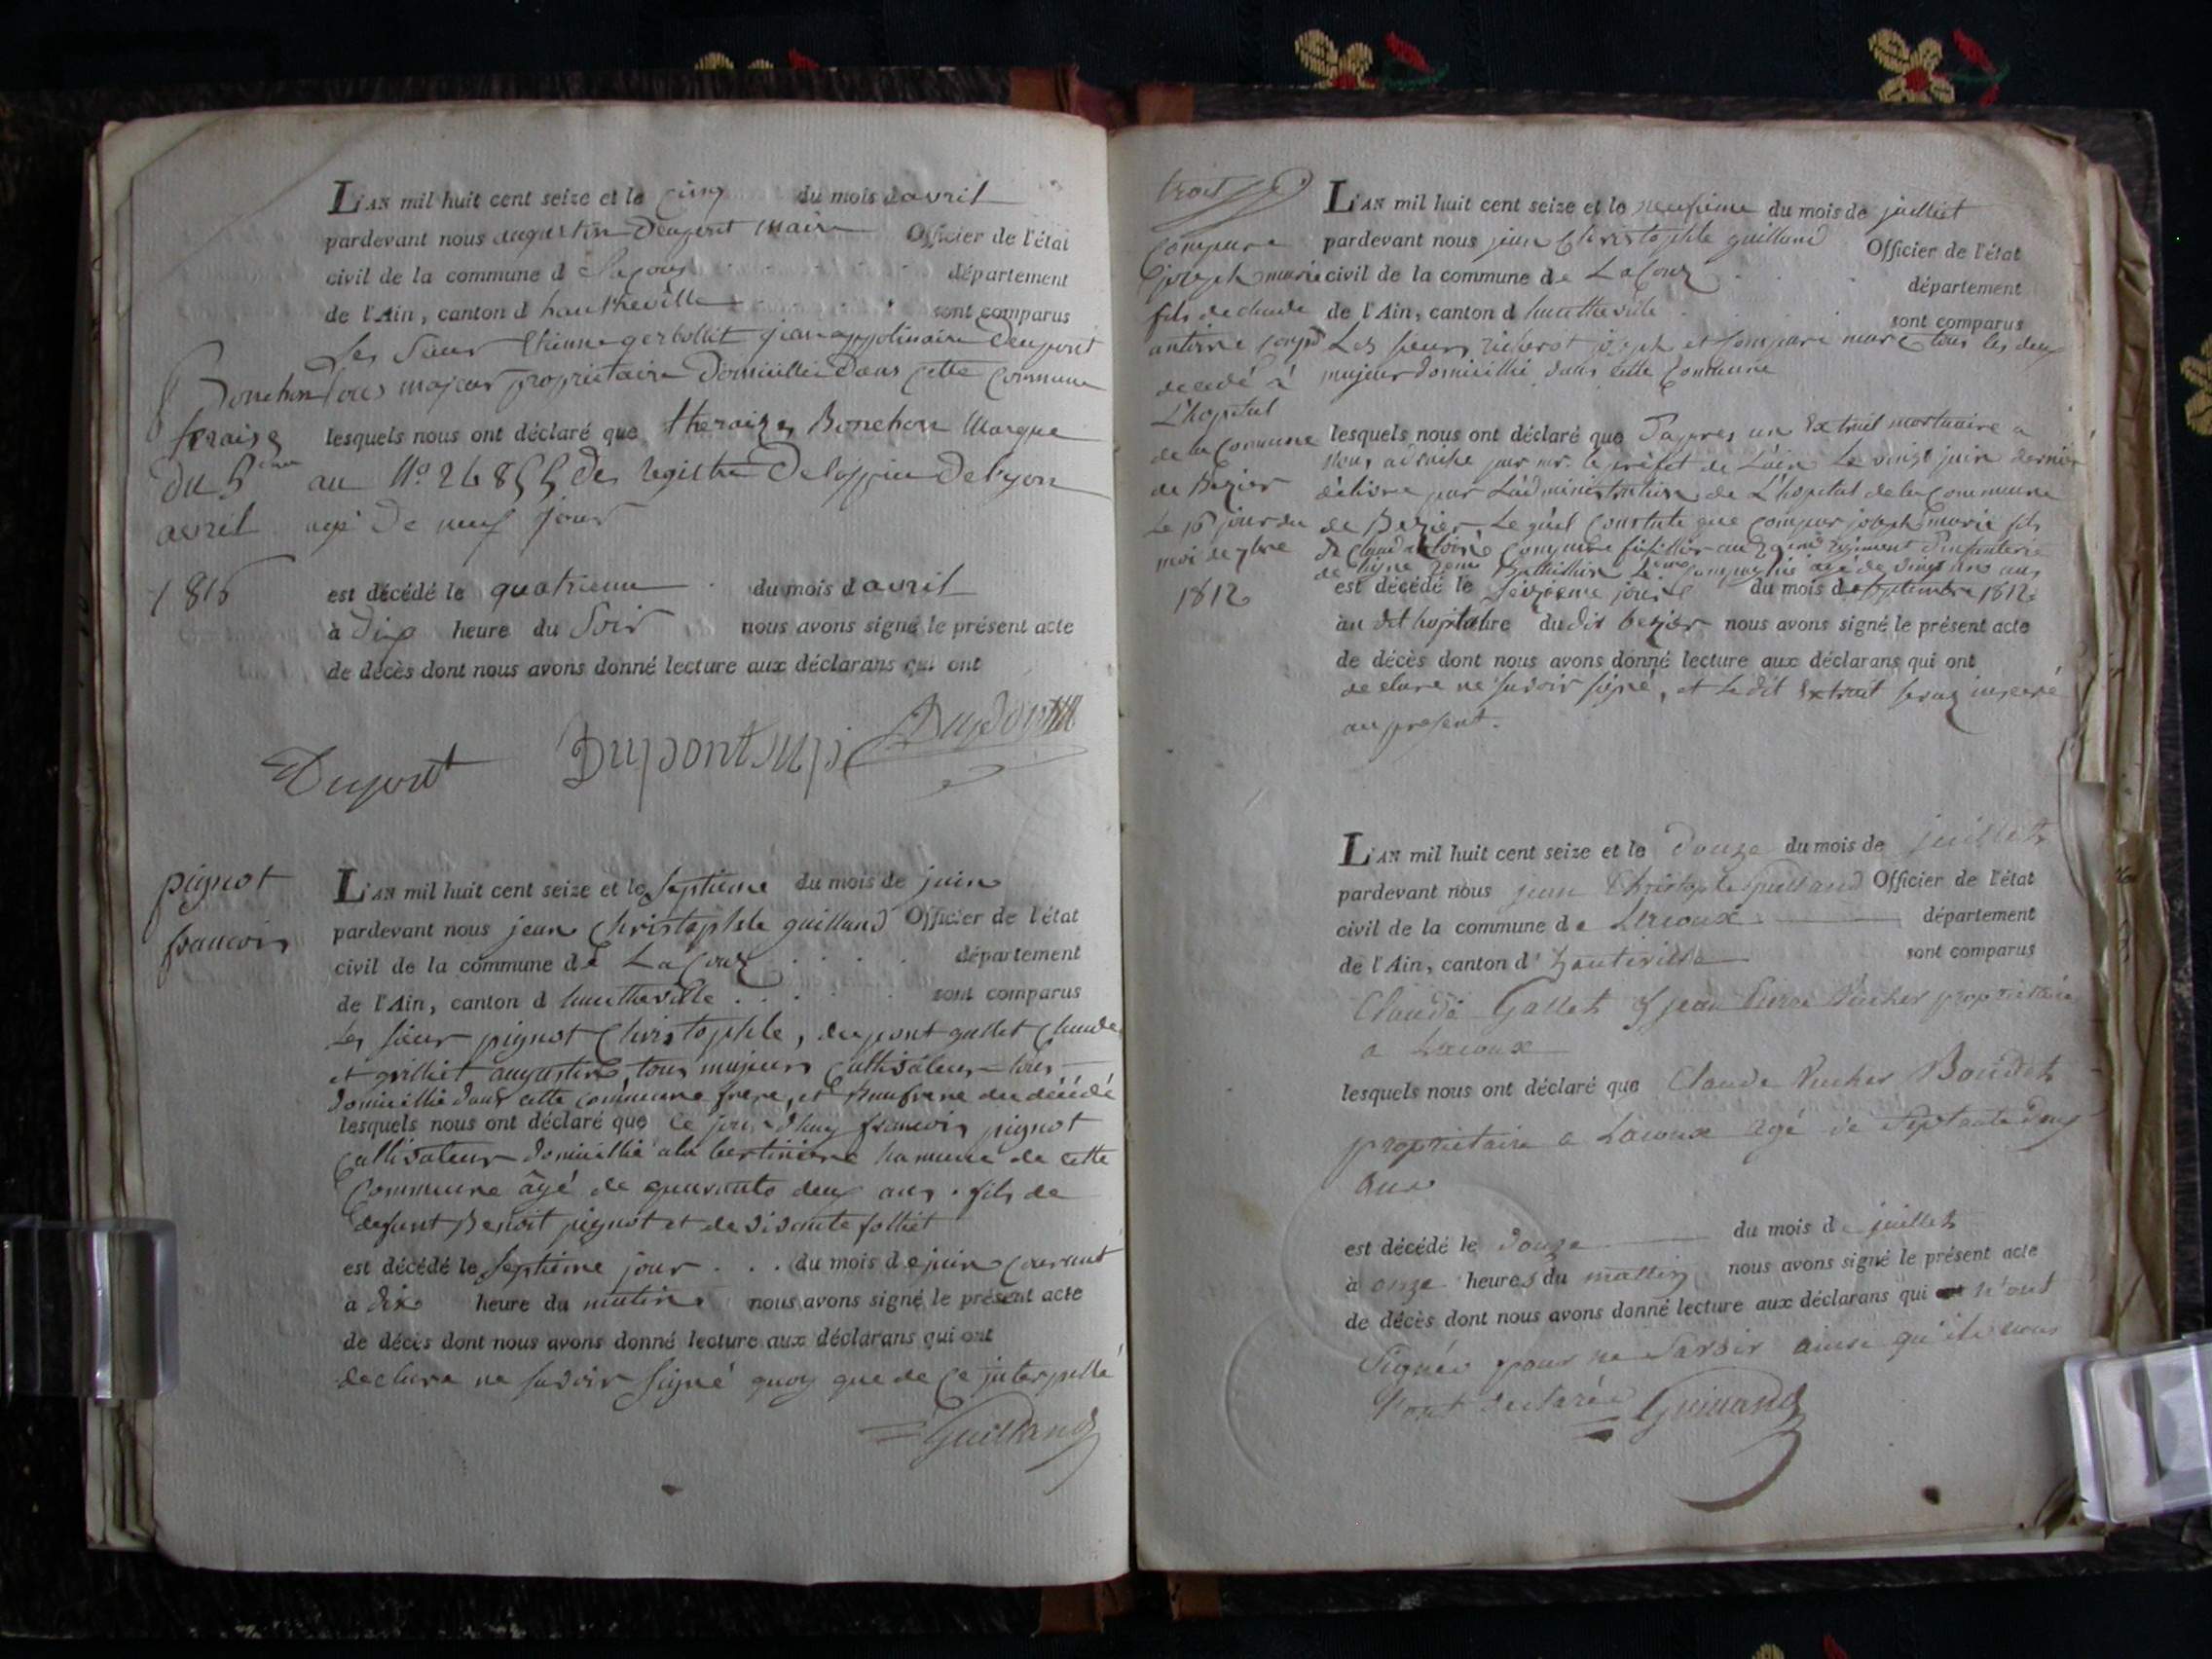 L'AN mil huit cent seize et le cinq du mois d avril
pardevant nous augustin Deupont maire Officier de l'état
civil de la commune d Lacoux département
de l'Ain, canton d hautheville sont comparus
Les Sieur thienne gerbollet jean appolinaire Deupont
tous majeur proprietaire Domicillié Dans Cette Commune
Bonchon
theraise
du 5
avril
1816
lesquels nous ont déclaré que theraize Bonchon Marque
au N° 26855 des registre De lospice De lyon
agé De neuf jour
est décédé le quatrieme du mois d avril
à Dix heure du Soir nous avons signé le présent acte
de décès dont nous avons donné lecture aux déclarans qui ont
Dupont Dupont
pignot
francois
L'AN mil huit cent seize et le septieme du mois de juin
pardevant nous jean Christophle guilland Officier de l'état
civil de la commune de La Couz département
de l'Ain, canton d hautheville sont comparus
Les sieur pignot Christophle, dupont gallet Claude
et grilliet augustin, tous majeurs Cultivateur tous
domicillié dans cette commune frere, et Beaufrere du décédé
lesquels nous ont déclaré que Ce jour dhuy francois pignot
Cultivateur domicillié a la bertiniere hameaux de cette
Commune âgé de quarante deux ans . fils de
defunt Benoit pignot et de folliet
est décédé le septieme jour . . . du mois de juin Courant
à dix heure du matin nous avons signé le présent acte
de décès dont nous avons donné lecture aux déclarans qui ont
declare ne savoir signé quoy que de Ce interpellé
Guilland
Compare
joseph marie
fils de claude
antoine
decedé à
L'hopital
de la Commune
de Bezier
Le 16 jour du
moi de 7bre
1812
L'AN mil huit cent seize et le neufieme du mois de juilliet
pardevant nous jean Christophle guilland Officier de l'état
civil de la commune de La Couz département
de l'Ain, canton d hautheville sont comparus
Les sieurs joseph et Compare marc tous les deux
majeur domicillié dans cette Commune
lesquels nous ont déclaré que Dapres un Extrait mortuaire a
Nous adraissé par mr. le préfet de L'ain Le vingt juin dernier
délivré par L'administration de L'hopital de la Commune
de Bezier Lequel Constate que Compare joseph marie fils
de Claude antoine Compare fusillier au regiment d'infanterie
de ligne Batillion Compagnie agé de vingt ans
est décédé le seizieme jour du mois de septembre 1812
au dit hopital du dit bezier nous avons signé le présent acte
de décès dont nous avons donné lecture aux déclarans qui ont
declare ne savoir signé, et Le dit Extrait seraz inseré
au present.
L'AN mil huit cent seize et le Douze du mois de juillet
pardevant nous jean Christophe guilland Officier de l'état
civil de la commune de Lacoux département
de l'Ain, canton d' hauteville sont comparus
Claude Gallet & jean Pierre Vucher proprietaire
a Lacoux
lesquels nous ont déclaré que Claude Vucher Baudet
proprietaire a Lacoux agé de Septente Deux
ans
est décédé le Douze du mois de juillet
à onze heures du mattin nous avons signé le présent acte
de décès dont nous avons donné lecture aux déclarans qui n'ont
Signée pour ne Savoir ainsi qu'ils nous
l'ont declarée Guilland